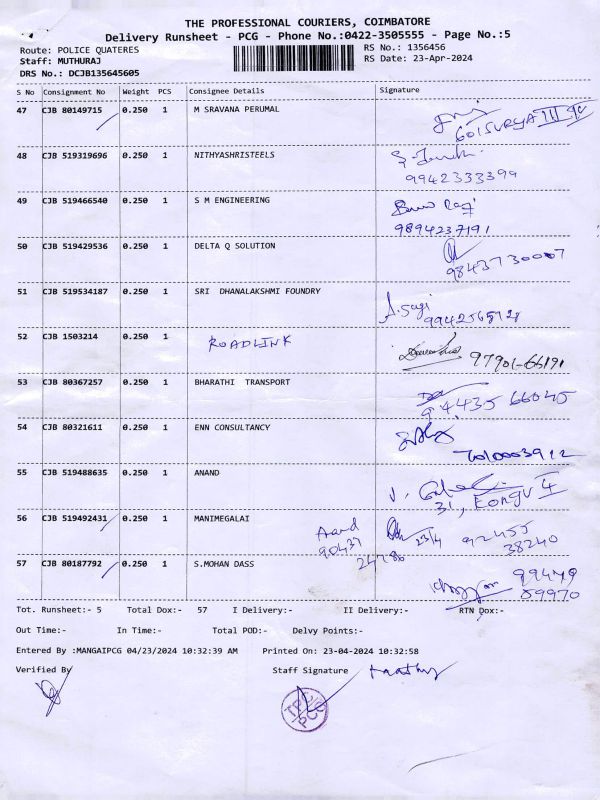 THE PROFESSIONAL COURIERS, COIMBATORE
Delivery Runsheet - PCG - Phone No.:0422-3505555 - Page No.:5
Route: POLICE QUATERES
RS No.: 1356456
Staff: MUTHURAJ
RS Date: 23-Apr-2024
DRS No.: DCJB135645605
S No Consignment No Weight PCS Consignee Details Signature
47 CJB 80149715 0.250 1 M SRAVANA PERUMAL
601 SURYA III
48 CJB 519319696 0.250 1 NITHYASHRISTEELS
9942333399
49 CJB 519466540 0.250 1 S M ENGINEERING
9894237191
50 CJB 519429536 0.250 1 DELTA Q SOLUTION
9843730007
51 CJB 519534187 0.250 1 SRI DHANALAKSHMI FOUNDRY
52 CJB 1503214 0.250 1 ROADLINK
97901-66191
53 CJB 80367257 0.250 1 BHARATHI TRANSPORT
94435 66045
54 CJB 80321611 0.250 1 ENN CONSULTANCY
7010003912
55 CJB 519488635 0.250 1 ANAND
31, Kongu
56 CJB 519492431 0.250 1 MANIMEGALAI
23/4 92455
90437 38240
57 CJB 80187792 0.250 1 S.MOHAN DASS
99449
59970
Tot. Runsheet:- 5 Total Dox:- 57 I Delivery:- II Delivery:- RTN Dox:-
Out Time:- In Time:- Total POD:- Delvy Points:-
Entered By :MANGAIPCG 04/23/2024 10:32:39 AM Printed On: 23-04-2024 10:32:58
Verified By Staff Signature